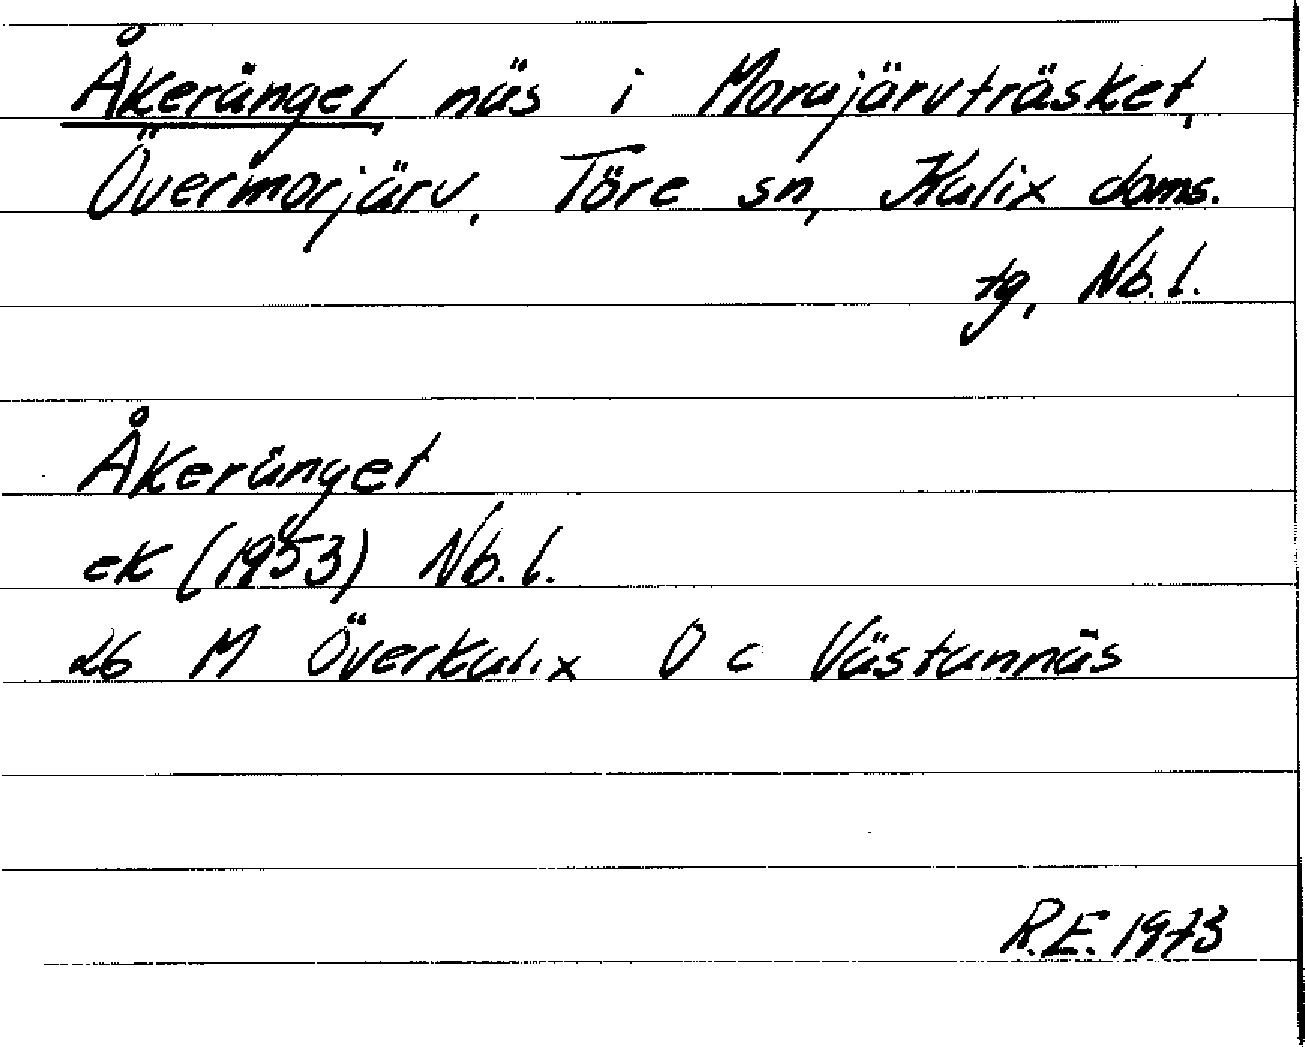 Åkeränget näs i Morajärvträsket,
Övermorjärv, Töre sn, Kalix doms.
tg, Nb.l.
Åkeränget
ek (1953) Nb.l.
26 M Överkalix O c Västannäs
R.E. 1973